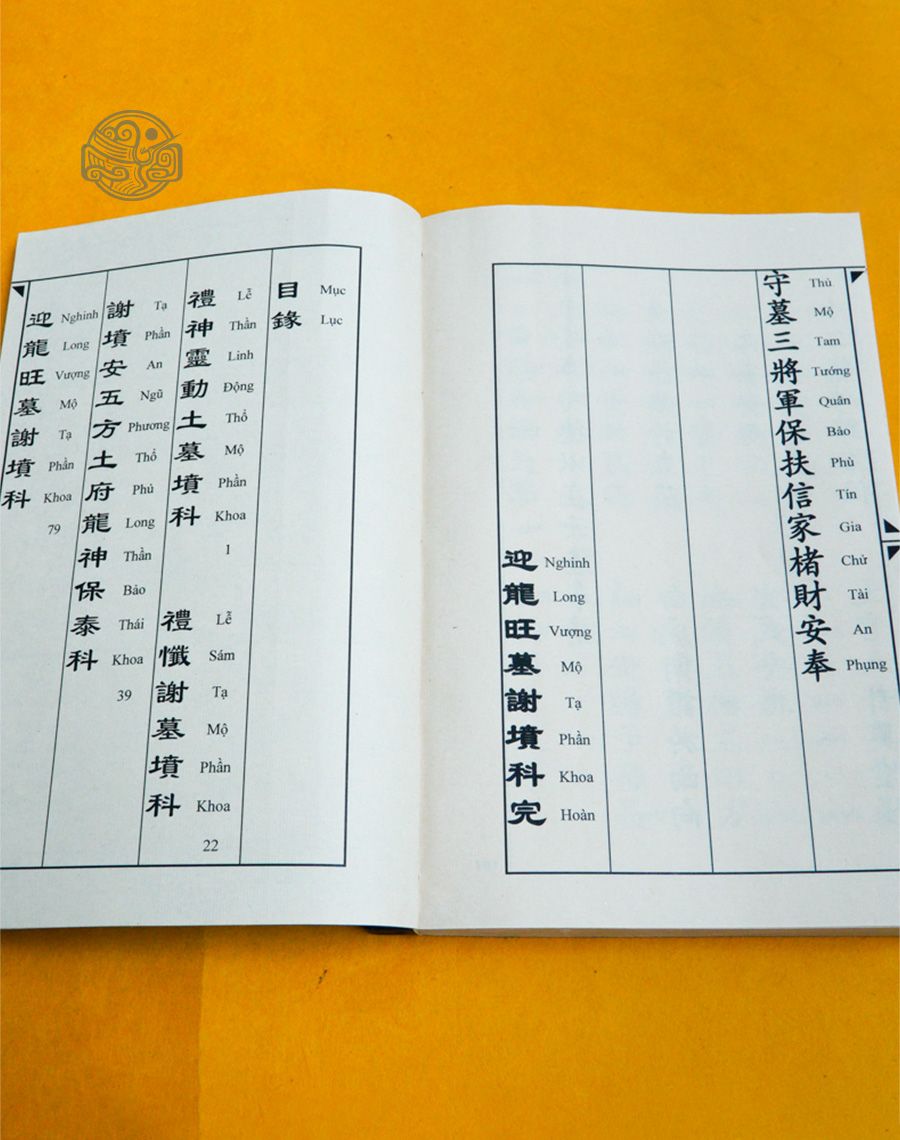 守墓三將軍保扶信家楮財安奉
Thủ Mộ Tam Tướng Quân Bảo Phù Tín Gia Chử Tài An Phụng
迎龍旺墓謝墳科完
Nghinh Long Vượng Mộ Tạ Phần Khoa Hoàn
目錄
Mục Lục
禮神靈動土墓墳科
Lễ Thần Linh Động Thổ Mộ Phần Khoa
1
禮懺謝墓墳科
Lễ Sám Tạ Mộ Phần Khoa
22
謝墳安五方土府龍神保泰科
Tạ Phần An Ngũ Phương Thổ Phủ Long Thần Bảo Thái Khoa
39
迎龍旺墓謝墳科
Nghinh Long Vượng Mộ Tạ Phần Khoa
79